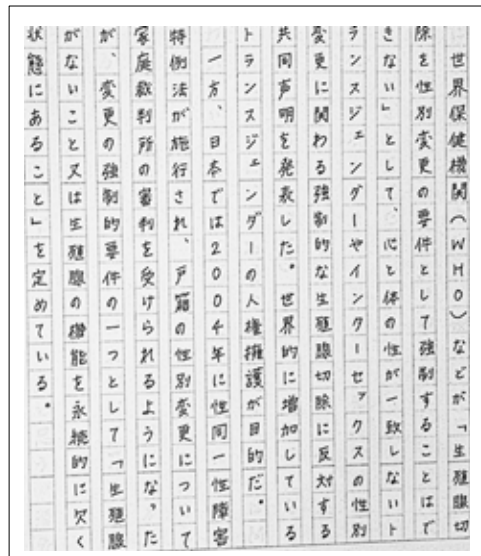 世界保健機関(WHO)などが「生殖腺切
除を性別変更の要件として強制することはで
きない」として、心と体の性が一致しないト
ランスジェンダーやインターセックスの性別
変更に関わる強制的な生殖腺切除に反対する
共同声明を発表した。世界的に増加している
トランスジェンダーの人権擁護が目的だ。
一方、日本では2004年に性同一性障害
特例法が施行され、戸籍の性別変更について
家庭裁判所の審判を受けられるようになった
が、変更の強制的要件の一つとして「生殖腺
がないこと又は生殖腺の機能を永続的に欠く
状態にあること」を定めている。